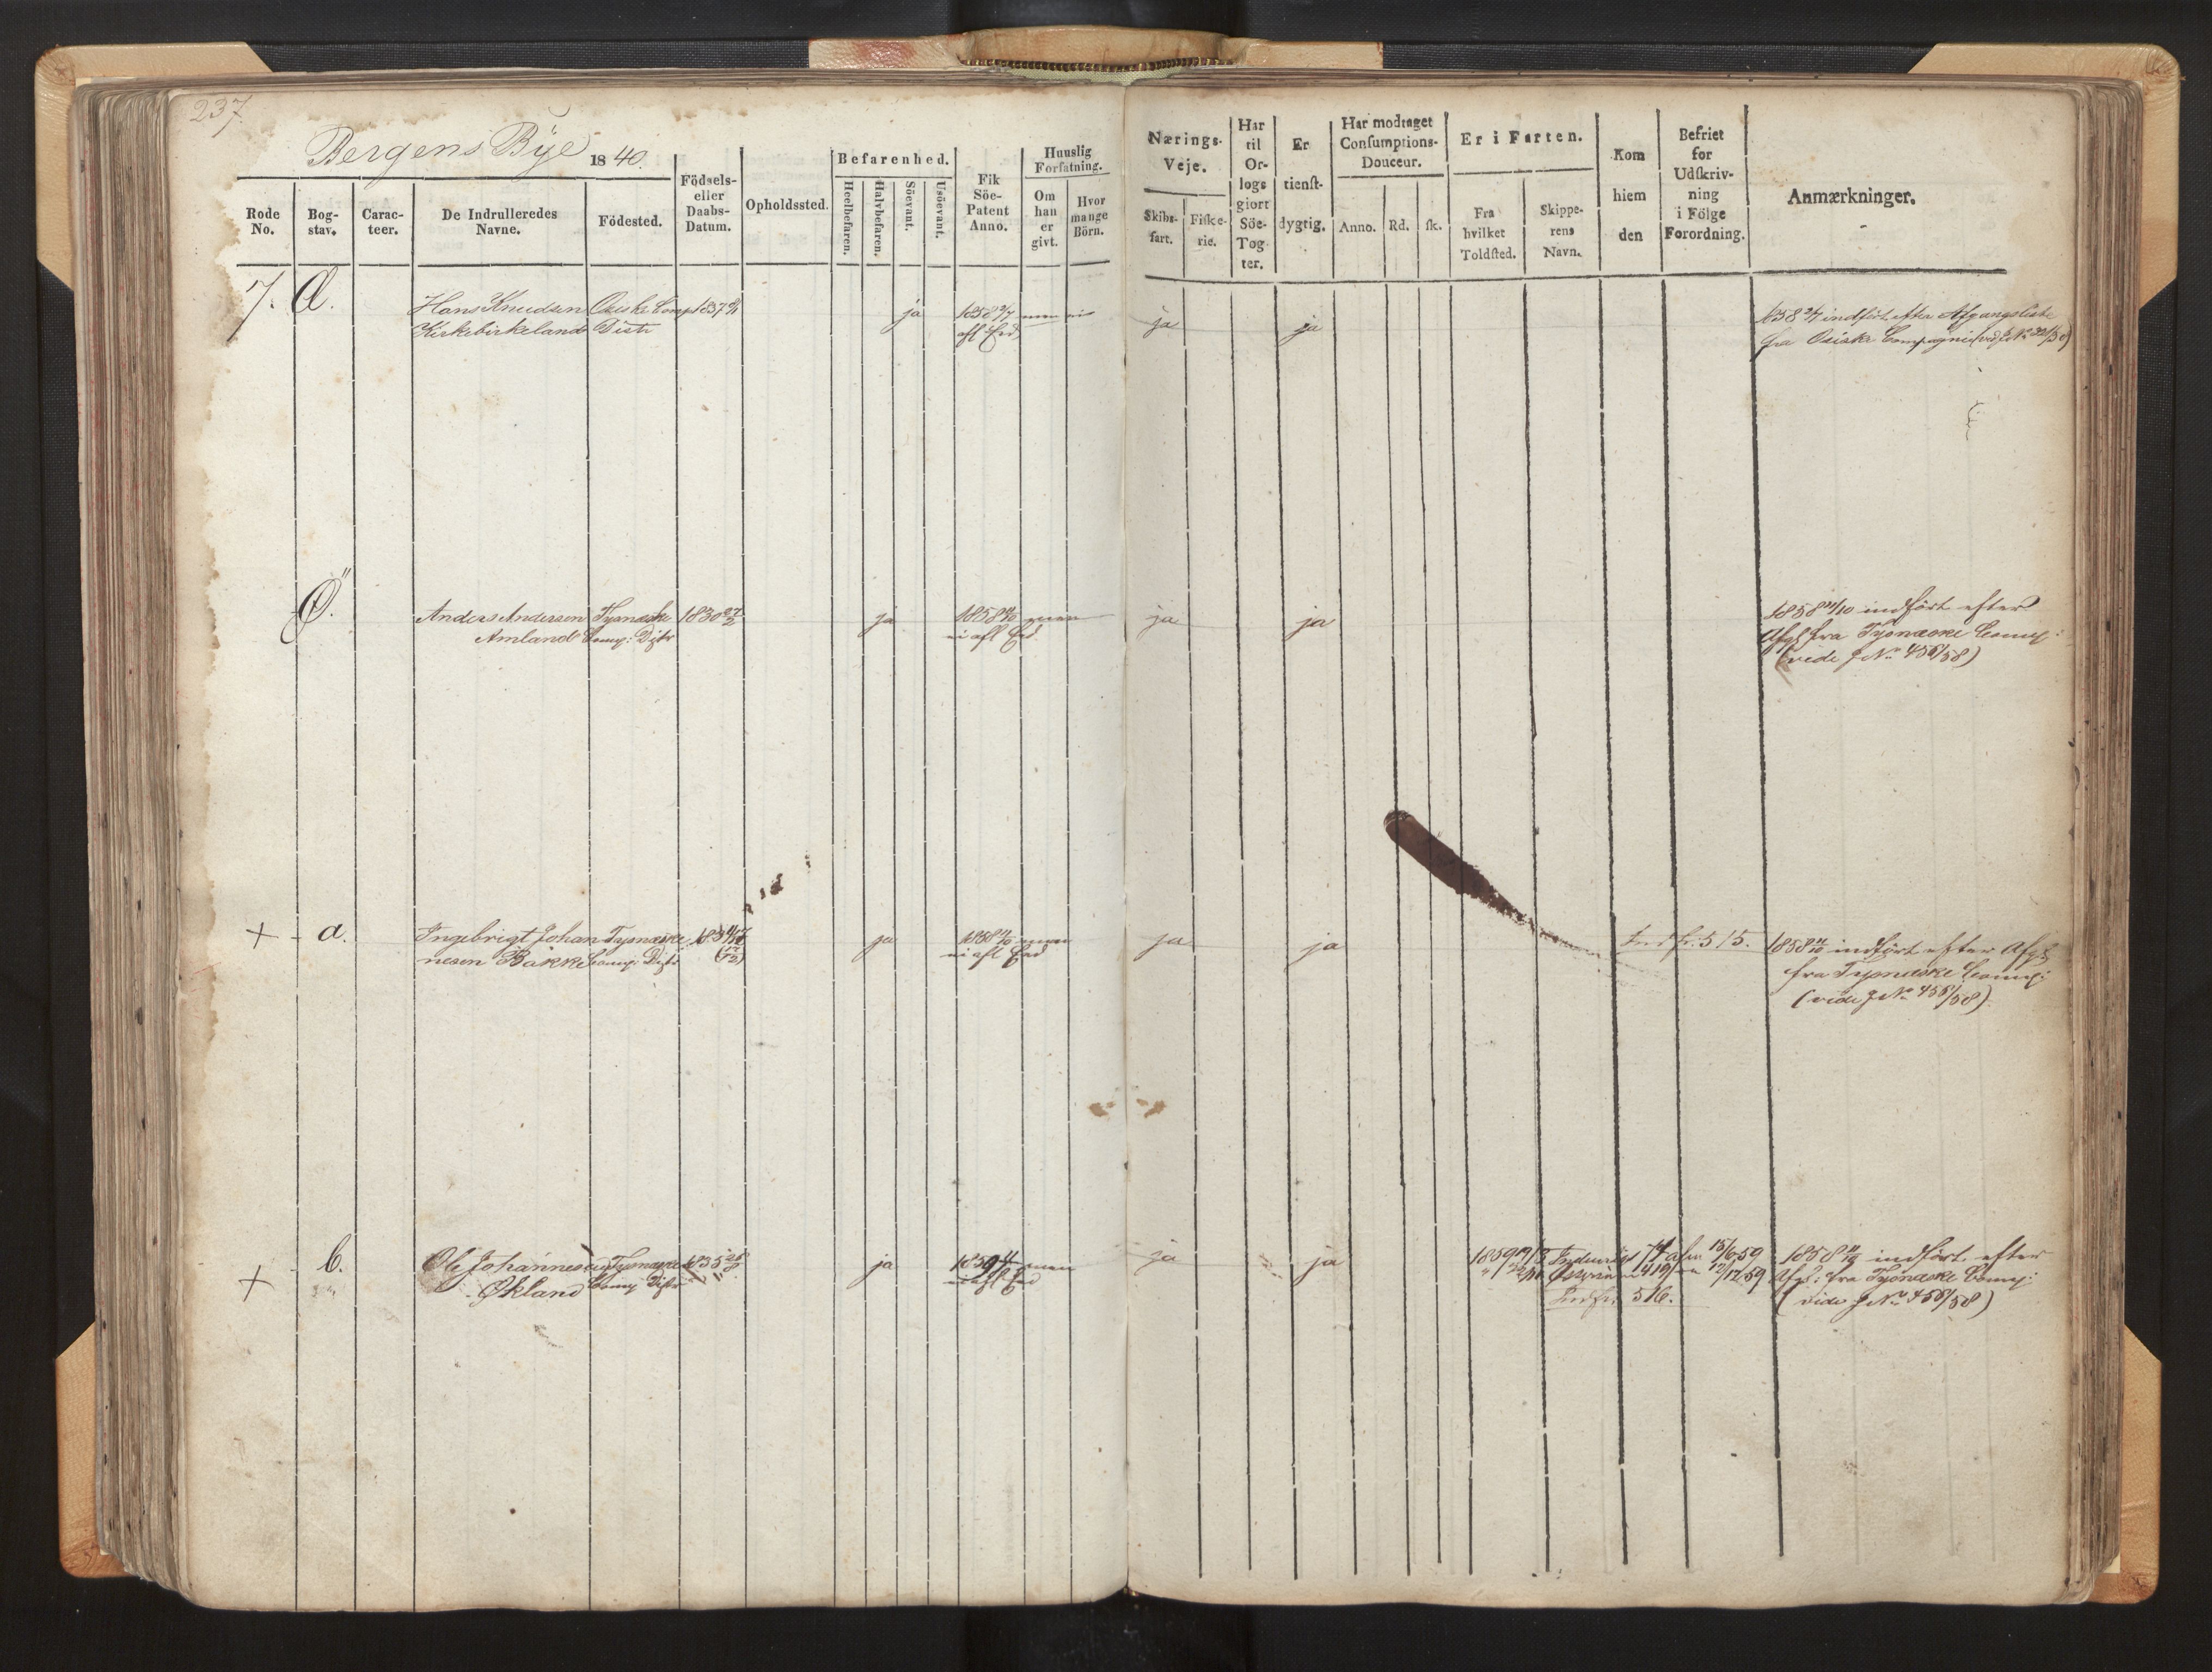 237
Bergens Bÿe 1840.
Rode No.
Bog-stav.
Carac-teer.
De Indrulleredes Navne.
Födested.
Födsels- eller Daabs-Datum.
Opholdssted.
Befarenhed.
Heelbefaren.
Halvbefaren.
Söevant.
Usöevant.
Fik Söe-Patent Anno.
Huuslig Forfatning.
Om han er givt.
Hvor mange Börn.
Nærings-Veje.
Skibs-fart.
Fiske-rie.
Har til Or-logs giort Söe-Tog-ter.
Er tienst-dygtig.
Har modtaget Consumptions-Douceur.
Anno.
Rd.
sk.
Er i Farten.
Fra hvilket Toldsted.
Skippe-rens Navn.
Kom hiem den
Befriet for Udskriv-ning i Fölge Forordning.
Anmærkninger.
7. Æ. Hans Knudsen
Kirkebirkeland Distr
ja 1858
ja ja
1858 indfört efter Afgangsliste
fra Osiske Compagni
Ø. Anders Andersen Tysnæske 1830 27/2
Amland Comp: Distr
ja 1858
ja ja
1858 indfört efter
Afgl fra Tysnæske Comp:
(vide J No 456/58)
+ a. Ingebrigt Johan Tysnæske
nesen Bakke Comp: Distr
ja 1858
ja ja 515.
1858 indfört efter Afgl
fra Tysnæske Comp:
(vide J No 456/58)
+ b. Ole Johannesen Tysnæske 1835
Økland Comp Distr
ja
ja ja
1859 15/6 59
12/12 59
516.
1858 indfört efter
Afgl: fra Tysnæske Comp:
(vide J No 456/58)